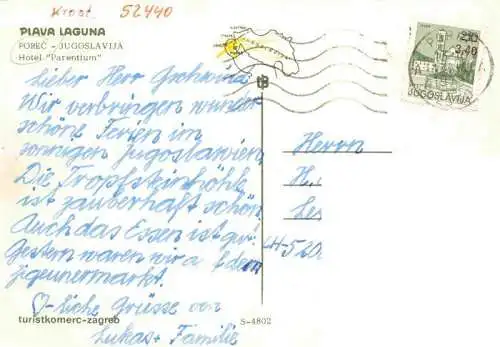 Kroat 52440
PLAVA LAGUNA
POREČ - JUGOSLAVIJA
Hotel "Parentium"
Lieber Herr
Wir verbringen wunder
schöne Ferien im
sonnigen Jugoslawien
Die Tropfsteinhöhle
ist zauberhaft schön.
Auch das Essen ist gut!
Gestern waren wir a dem
zigeunermarkt.
♡-liche Grüsse von
Lukas + Familie
turistkomerc-zagreb
S-4802
3,40
JUGOSLAVIJA
Herrn
H.
CH-520